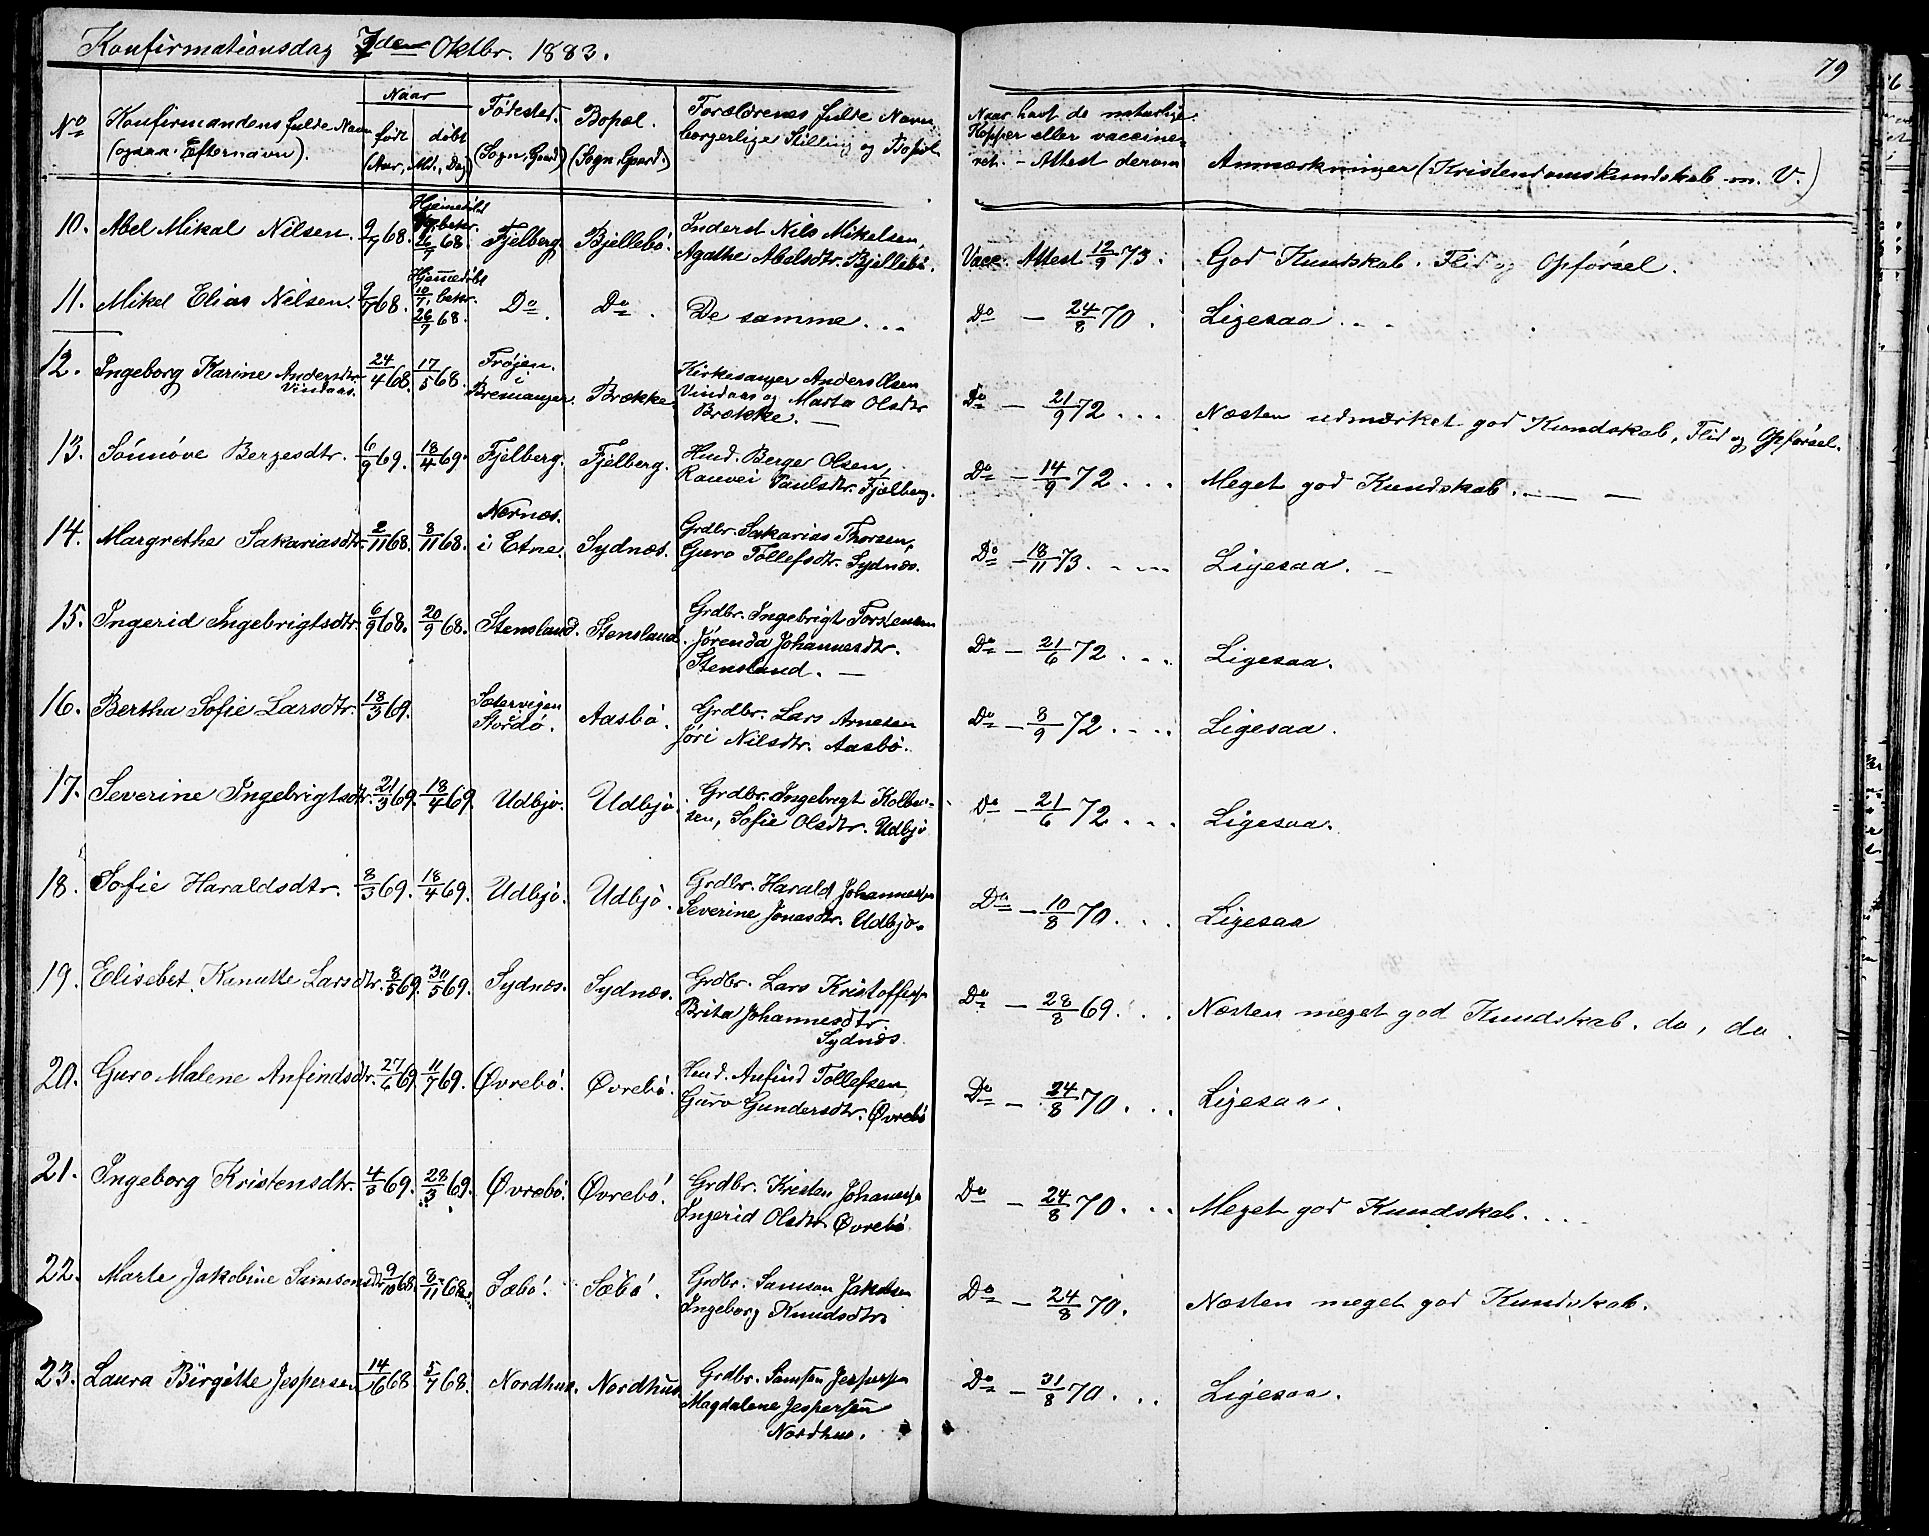 Konfirmationsdag 7den Oktbr. 1883.
79
No
Konfirmandens fulde Navn
(ogsaa Efternavn).
Naar
født
døbt
(Aar, Md., Dag)
Fødested.
(Sogn, Gaard)
Bopæl.
(Sogn, Gaard.)
Forældrenes fulde Navn
borgerlige Stilling og Bopæl
Naar havt de naturlige
Kopper eller vaccine-
ret. - Attest derom
Anmærkninger (Kristendomskundskab m. V.)
10. Abel Mikal Nilsen. 9/7 68. Hjemedøbt
bekr.
26/7 68. Fjelberg Bjellebö. Inderst Nils Mikelsen,
Agathe Abelsdtr. Bjellebö. Vacc. Attest 12/9 73. God Kundskab. Flid og Opförsel.
11. Mikel Elias Nilsen. 9/7 68. Hjemmedöbt
10/7, bekr.
26/7 68. Do. Do. De samme... Do - 24/8 70. Ligesaa...
12. Ingeborg Karine Andersdtr.
Vindaas. 24/4 68. 17/5 68. Fröjen.
i
Bremanger. Brække. Kirkesanger Anders Olsen
Vindaas og Marta Olsdtr
Brække. - Do - 21/9 72... Næsten udmærket god Kundskab, Flid og Opförsel.
13. Sönnöve Bergesdtr. 6/9 69. 18/4 69. Fjelberg. Fjelberg. Hmd. Berge Olsen,
Ranvei Paulsdtr. Fjelberg. Do - 14/9 72... Meget god Kundskab. - -
14. Margrethe Sakariasdtr. 2/11 68. 8/11 68. Nernæs.
i Etne. Sydnæs. Grdbr. Sakarias Thorsen,
Guro Tollefsdtr. Sydnæs. Do - 18/11 73. Ligesaa. -
15. Ingerid Ingebrigtsdtr. 6/9 68. 20/9 68. Stensland. Stensland. Grdbr. Ingebrigt Torstensen
Jörenda Johannesdtr.
Stensland. - Do - 21/6 72... Ligesaa.
16. Bertha Sofie Larsdtr. 18/3 69. Sætervigen
Stordö. Aasbö. Grdbr. Lars Arnesen
Jöri Nilsdtr. Aasbö. Do - 8/9 72.... Ligesaa.
17. Severine Ingebrigtsdtr. 21/3 69. 18/4 69 Udbjö. Udbjö. Grdbr. Ingebrigt Kolben-
sen, Sofie Olsdtr. Udbjö Do - 21/6 72... Ligesaa.
18. Sofie Haraldsdtr. 8/3 69. 18/4 69. Udbjö. Udbjö. Grdbr. Harald Johannessen
Severine Jonasdtr. Udbjö. Do - 10/8 70... Ligesaa
19. Elisebet Kanutte Larsdtr. 8/5 69. 30/5 69. Sydnæs. Sydnæs. Grdbr. Lars Kristoffersen
Brita Johannesdtr.
Sydnæs. Do - 28/8 69... Næsten meget god Kundskab. do, do.
20. Guro Malene Anfindsdtr. 27/6 69. 11/7 69. Øvrebö. Øvrebö. Hmd. Anfind Tollefsen
Guro Gundersdtr. Øvrebö Do - 24/8 70... Ligesaa.
21. Ingeborg Kristensdtr. 4/3 69. 28/3 69. Øvrebö. Øvrebö. Grdbr. Kristen Johannessen
Ingerid Olsdtr. Øvrebö Do - 24/8 70... Meget god Kundskab....
22. Marte Jakobine Samsonsdtr 9/10 68. 8/11 68. Sæbö. Sæbö. Grdbr. Samson Jakobsen
Ingeborg Knudsdtr. Do - 24/8 70. Næsten meget god Kundskab.
23. Laura Birgitte Jespersen 14/6 68 5/7 68. Nordhus. Nordhus. Grdbr. Samson Jespersen
Magdalene Jespersen
Nordhus. Do - 31/8 70... Ligesaa.